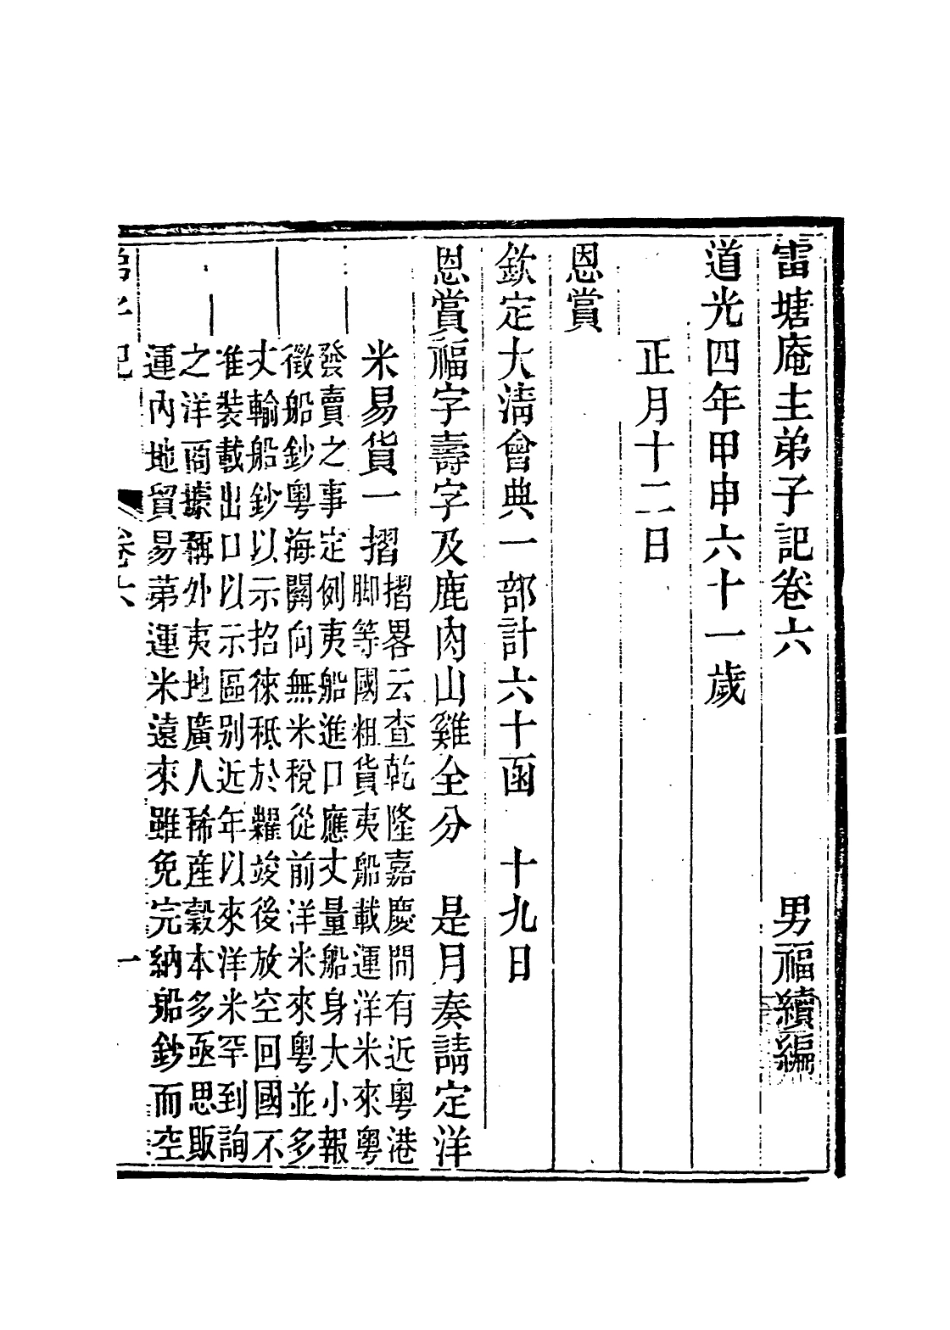 雷塘庵主弟子記卷六　男福續編
道光四年甲申六十一歲
正月十二日
恩賞
欽定大清會典一部計六十函　十九日
恩賞福字壽字及鹿肉山雞全分　是月奏請定洋
米易貨一摺
摺畧云查乾隆嘉慶間有近粵港
脚等國粗貨夷船載運洋米來粵
發賣之事定例夷船進口應丈量船身大小報
徵船鈔粵海關向無米稅從前洋米來粵並多
丈輸船鈔以示招徠秪於糶竣後放空回國不
准裝載出口以示區別近年以來洋米罕到詢
之洋商據稱外夷地廣人稀産穀本多亟思販
運內地貿易第運米遠來雖免完納船鈔而空
弟子記　卷六　一